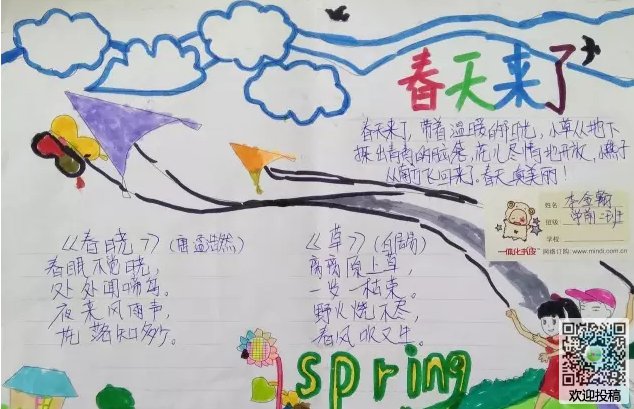 春天来了
春天来了,带着温暖的阳光,小草从地下
探出青青的脑袋,花儿尽情地开放,燕子
从南方飞回来了。春天真美丽!
姓名:李金翰
班级:学前二班
学校:
网络订购:www.mindi.com.cn
《春晓》(唐 孟浩然)
春眠不觉晓,
处处闻啼鸟。
夜来风雨声,
花落知多少。
《草》(白居易)
离离原上草,
一岁一枯荣。
野火烧不尽,
春风吹又生。
spring
欢迎投稿